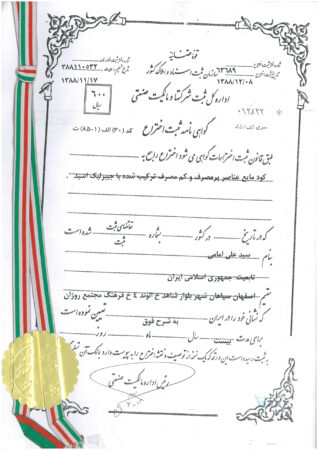 قوه قضائیه
سازمان ثبت اسناد و املاک کشور
اداره کل ثبت شرکتها و مالکیت صنعتی
۶۳۶۸۹
۱۳۸۸/۱۲/۰۸
۳۸۸۱۱۰۵۳۲
۱۳۸۸/۱۱/۱۷
۶۰۰
ریال
گواهی نامه ثبت اختراع
کد (۳۰) الف (۱-۸۵) ث
طبق قانون ثبت اختراعات گواهی می شود اختراع راجع به
کود مایع عناصر پرمصرف و کم مصرف ترکیب شده با جیبرلیک اسید
که در تاریخ در کشور بشماره تقاضای ثبت شده است
ثبت
بنام سید علی امامی
تابعیت جمهوری اسلامی ایران
مقیم اصفهان سپاهان شهر بلوار شاهد خ الوند ٤ خ فرهنگ مجتمع روژان
که نشانی خود را در ایران به شرح فوق تعیین نموده است
برای مدت بیست سال ماه روز
به ثبت رسیده است این ورقه که یک نسخه از توصیف و نقشه اختراع را به پیوست دارد
رئیس اداره مالکیت صنعتی